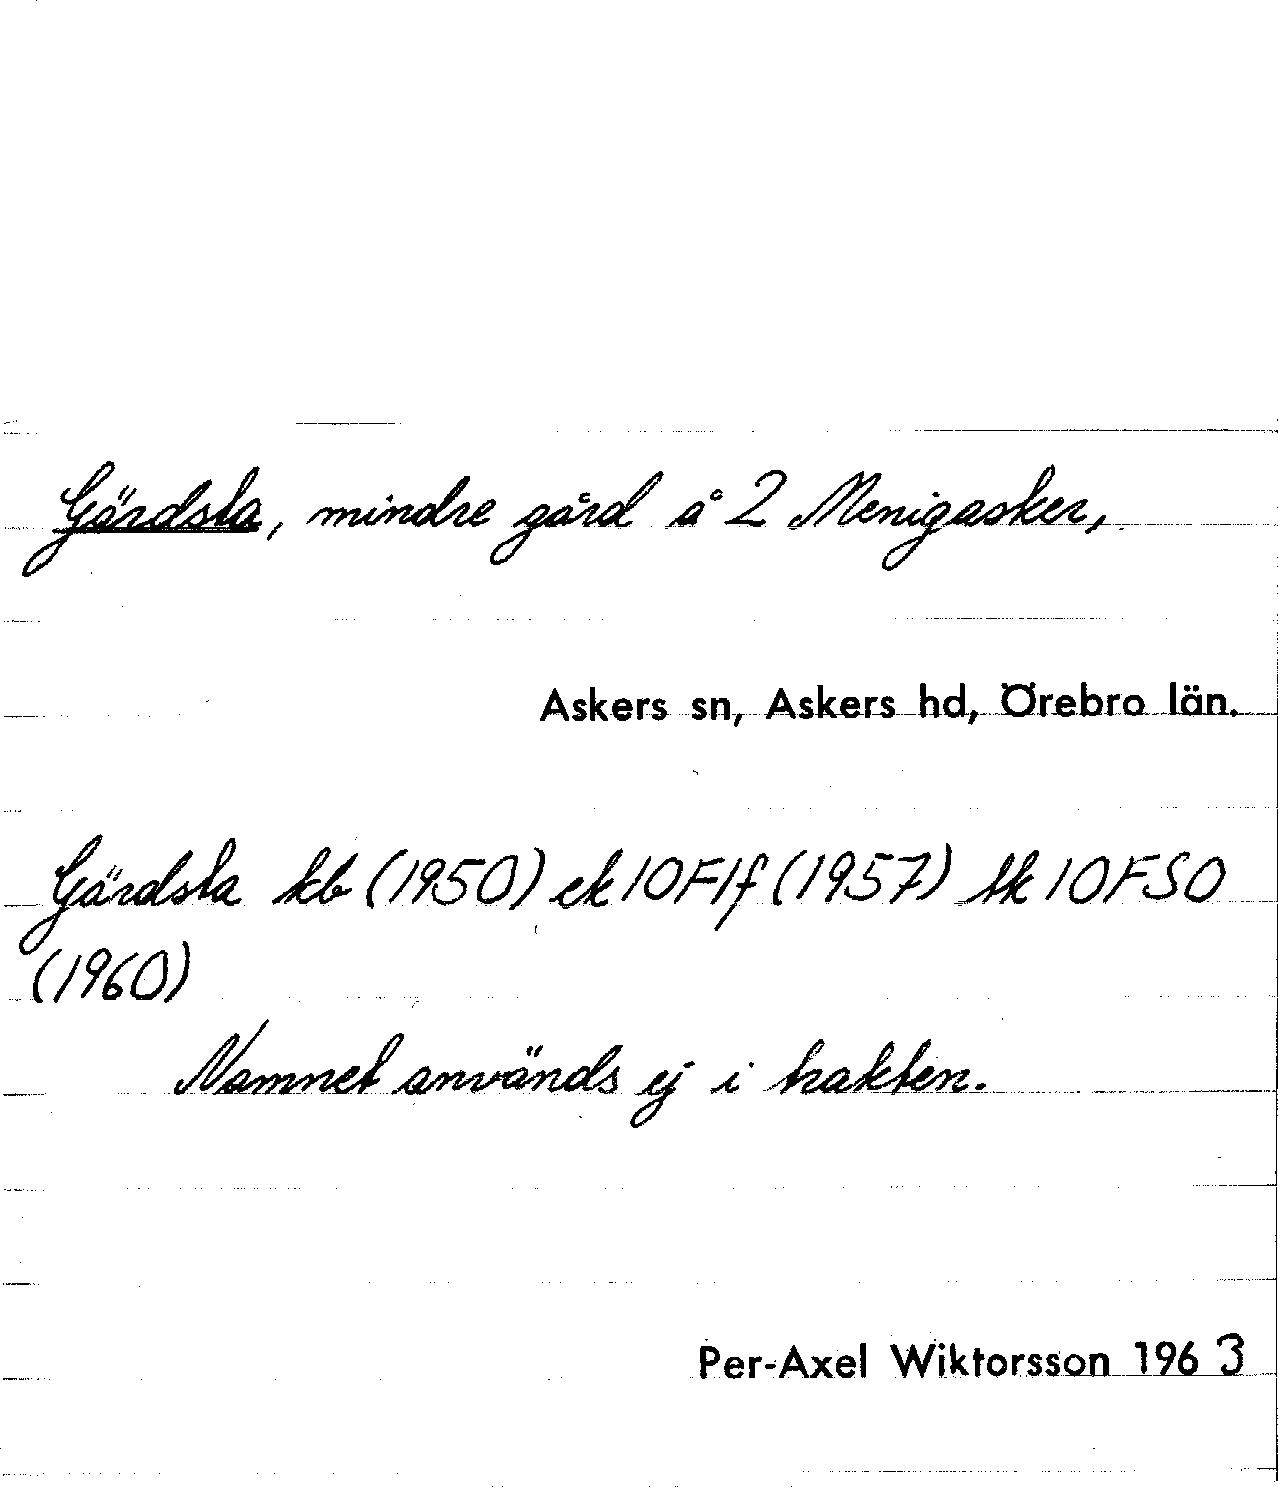 Gärdsta, mindre gård å 2 Menigasker,
Askers sn, Askers hd, Örebro län.
Gärdsta kb (1950) ek 10F1f (1957) tk 10FSO
(1960)
Namnet används ej i trakten.
Per-Axel Wiktorsson 1963